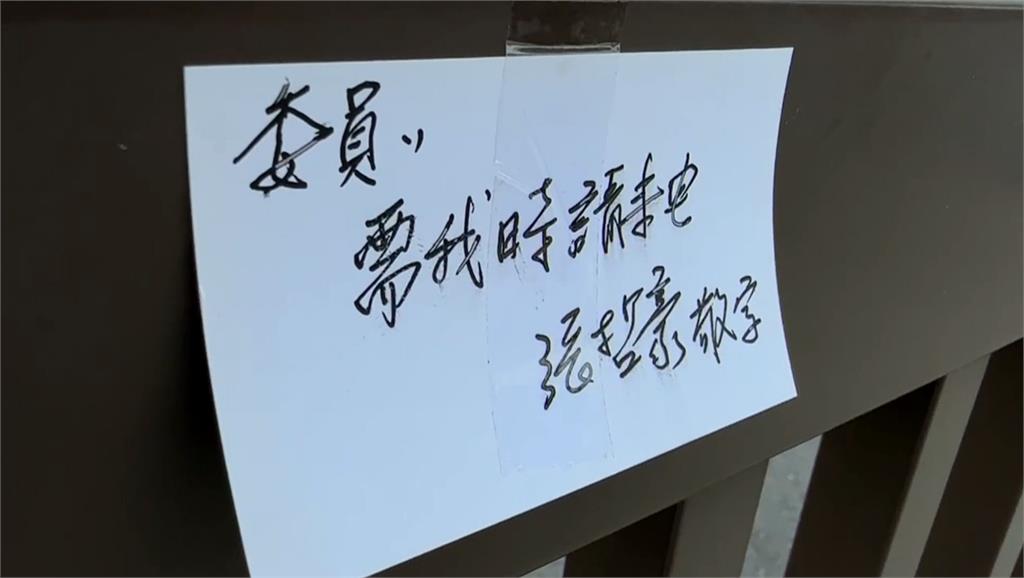 委員：
需我時請來电
張哲豪敬字